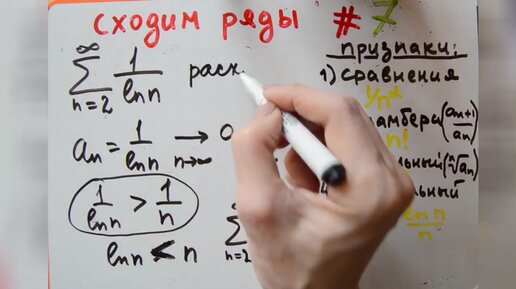 сходим ряды #7
∞ ∑ n=2 1/ln n расх
aₙ = 1/ln n → 0 n→∞
1/ln n > 1/n
ln n < n
∑ n=2
признаки:
1) сравнения
1/n^α
амбера (aₙ₊₁/aₙ)
n!
льный (ⁿ√aₙ)
льный
ln n/n